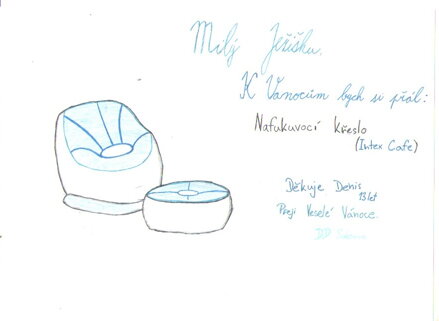 Milý Ježíšku.
K Vánocům bych si přál:
Nafukuvocí křeslo
(Intex Cafe)
Děkuje Denis
13 let
Přeji Veselé Vánoce.